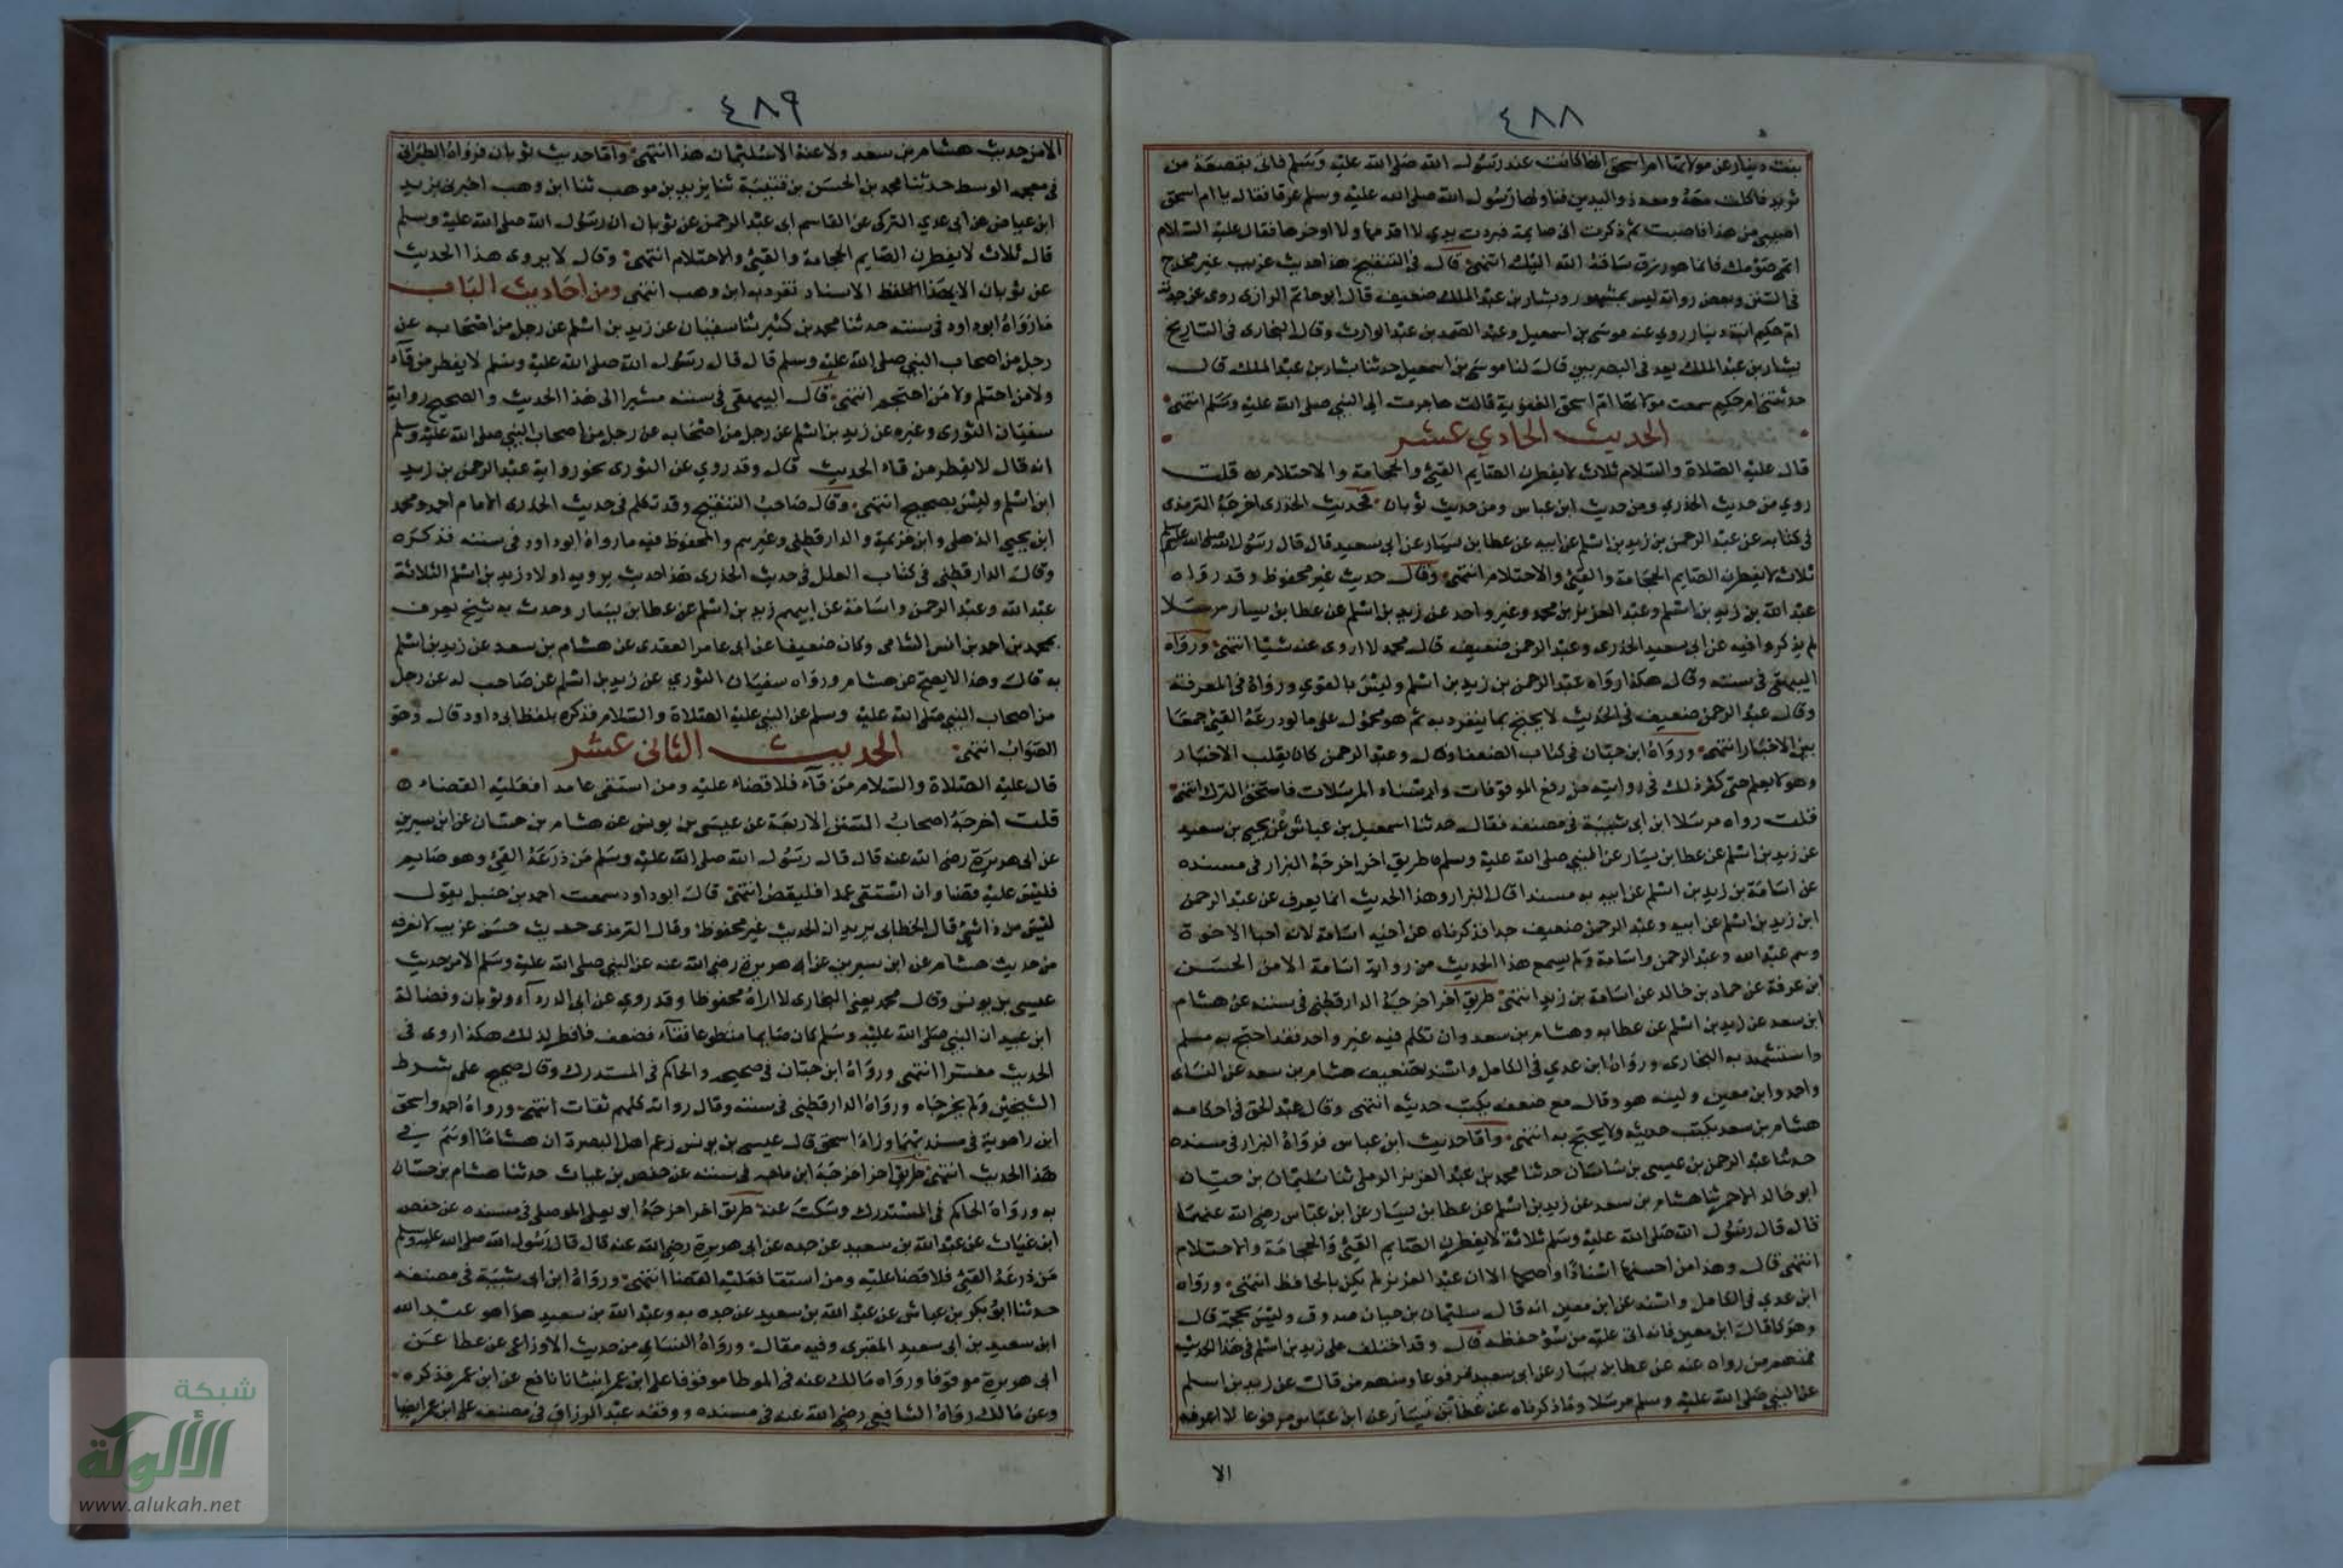 ٤٨٨
بنت دينار عن مولاتها ام اسحق انها كانت عند رسول الله صلى الله عليه وسلم فاتى بقصعة من
ثريد فاكلت معه ومعه ذو اليدين فناولها رسول الله صلى الله عليه وسلم عرقا فقال يا ام اسحق
اصيبي من هذا فاصبت ثم ذكرت اني صايمة فبردت يدي لا اقدمها ولا اوخرها فقال عليه السلام
اتمي صومك فانما هو رزق ساقه الله اليك انتهى قال في التنقيح هذا حديث غريب غير مخرج
في السنن وبعض رواته ليس بمشهور وبشار بن عبد الملك ضعيف قال ابو حاتم الرازي روى عن جدته
ام حكيم ابنة دينار روي عنه موسى بن اسمعيل وعبد الصمد بن عبد الوارث وقال البخاري في التاريخ
بشار بن عبد الملك يعد في البصريين قال لنا موسى بن اسمعيل حدثنا بشار بن عبد الملك قال
حدثتني ام حكيم سمعت مولاتها ام اسحق الغنوية قالت هاجرت الى النبي صلى الله عليه وسلم انتهى
الحديث الحادي عشر
قال عليه الصلاة والسلام ثلاث لا يفطرن الصايم القيئ والحجامة والاحتلام قلت
روي من حديث الخدري ومن حديث ابن عباس ومن حديث ثوبان فحديث الخدري اخرجه الترمذي
في كتابه عن عبد الرحمن بن زيد بن اسلم عن ابيه عن عطا بن يسار عن ابي سعيد قال قال رسول الله صلى الله عليه وسلم
ثلاث لا يفطرن الصايم الحجامة والقيئ والاحتلام انتهى وقال حديث غير محفوظ وقد رواه
عبد الله بن زيد بن اسلم وعبد العزيز بن محمد وغير واحد عن زيد بن اسلم عن عطا بن يسار مرسلا
لم يذكروا فيه عن ابي سعيد الخدري وعبد الرحمن ضعيف قال محمد لا اروى عنه شيئا انتهى ورواه
البيهقي في سننه وقال هكذا رواه عبد الرحمن بن زيد بن اسلم وليس بالقوي ورواه في المعرفة
وقال عبد الرحمن ضعيف في الحديث لا يحتج بما ينفرد به ثم هو محمول على ما لو ذرعه القيئ جمعا
بين الاخبار انتهى ورواه ابن حبان في كتاب الضعفا وقال وعبد الرحمن كان يقلب الاخبار
وهو لا يعلم حتى كثر ذلك في روايته من رفع الموقوفات واسناد المرسلات فاستحق الترك انتهى
قلت رواه مرسلا ابن ابي شيبة في مصنفه فقال حدثنا اسمعيل بن عياش عن يحيى بن سعيد
عن زيد بن اسلم عن عطا بن يسار عن النبي صلى الله عليه وسلم طريق اخر اخرجه البزار في مسنده
عن اسامة بن زيد بن اسلم عن ابيه به مسندا قال البزار وهذا الحديث انما يعرف عن عبد الرحمن
ابن زيد بن اسلم عن ابيه وعبد الرحمن ضعيف جدا فذكرناه عن اخيه اسامة لانه احد الاخوة
وهم عبد الله وعبد الرحمن واسامة ولم يسمع هذا الحديث من رواية اسامة الا من الحسن
ابن عرفة عن حماد بن خالد عن اسامة بن زيد انتهى طريق اخر اخرجه الدارقطني في سننه عن هشام
ابن سعد عن زيد بن اسلم عن عطا به وهشام بن سعد وان تكلم فيه غير واحد فقد احتج به مسلم
واستشهد به البخاري ورواه ابن عدي في الكامل واسند تضعيف هشام بن سعد عن النساي
واحمد وابن معين ولينه هو وقال مع ضعفه يكتب حديثه انتهى وقال عبد الحق في احكامه
هشام بن سعد يكتب حديثه ولا يحتج به انتهى واما حديث ابن عباس فرواه البزار في مسنده
حدثنا عبد الرحمن بن عيسى بن ساسان حدثنا محمد بن عبد العزيز الرملي ثنا سليمان بن حيان
ابو خالد الاحمر ثنا هشام بن سعد عن زيد بن اسلم عن عطا بن يسار عن ابن عباس رضي الله عنهما
قال قال رسول الله صلى الله عليه وسلم ثلاثة لا يفطرن الصايم القيئ والحجامة والاحتلام
انتهى قال وهذا من احسنها اسنادا واصحها الا ان عبد العزيز لم يكن بالحافظ انتهى ورواه
ابن عدي في الكامل واسند عن ابن معين انه قال سليمان بن حيان صدوق وليس بحجة قال
وهو كما قال ابن معين فانه اتى عليه من سوء حفظه قال وقد اختلف على زيد بن اسلم في هذا الحديث
فمنهم من رواه عنه عن عطا بن يسار عن ابي سعيد مرفوعا ومنهم من قال عن زيد بن اسلم
عن النبي صلى الله عليه وسلم مرسلا وما ذكرناه عن عطا بن يسار عن ابن عباس مرفوعا لا اعرفه
الا
٤٨٩
الا من حديث هشام بن سعد ولا عنه الا سليمان هذا انتهى واما حديث ثوبان فرواه الطبراني
في معجمه الوسط حدثنا محمد بن الحسن بن قتيبة ثنا يزيد بن موهب ثنا ابن وهب اخبرني يزيد
ابن عياض عن ابي عدي التركي عن القاسم ابي عبد الرحمن عن ثوبان ان رسول الله صلى الله عليه وسلم
قال ثلاث لا يفطرن الصايم الحجامة والقيئ والاحتلام انتهى وقال لا يروى هذا الحديث
عن ثوبان الا بهذا الاسناد تفرد به ابن وهب انتهى ومن احاديث الباب
ما رواه ابو داود في سننه حدثنا محمد بن كثير ثنا سفيان عن زيد بن اسلم عن رجل من اصحابه عن
رجل من اصحاب النبي صلى الله عليه وسلم قال قال رسول الله صلى الله عليه وسلم لا يفطر من قاء
ولا من احتلم ولا من احتجم انتهى قال البيهقي في سننه مشيرا الى هذا الحديث والصحيح رواية
سفيان الثوري وغيره عن زيد بن اسلم عن رجل من اصحابه عن رجل من اصحاب النبي صلى الله عليه وسلم
انه قال لا يفطر من قاء الحديث قال وقد روي عن الثوري نحو رواية عبد الرحمن بن زيد
ابن اسلم وليس بصحيح انتهى وقال صاحب التنقيح وقد تكلم في حديث الخدري الامام احمد ومحمد
ابن يحيى الذهلي وابن خزيمة والدارقطني وغيرهم والمحفوظ فيه ما رواه ابو داود في سننه فذكره
وقال الدارقطني في كتاب العلل في حديث الخدري هذا حديث يرويه اولاد زيد بن اسلم الثلاثة
عبد الله وعبد الرحمن واسامة عن ابيهم زيد بن اسلم عن عطا بن يسار وحدث به شيخ يعرف
بمحمد بن احمد بن انس الشامي وكان ضعيفا عن ابي عامر العقدي عن هشام بن سعد عن زيد بن اسلم
به قال وهذا لا يصح عن هشام ورواه سفيان الثوري عن زيد بن اسلم عن صاحب له عن رجل
من اصحاب النبي صلى الله عليه وسلم عن النبي عليه الصلاة والسلام فذكره بلفظ ابي داود قال وهو
الصواب انتهى الحديث الثاني عشر
قال عليه الصلاة والسلام من قاء فلا قضاء عليه ومن استقى عامدا فعليه القضاء
قلت اخرجه اصحاب السنن الاربعة عن عيسى بن يونس عن هشام بن حسان عن ابن سيرين
عن ابي هريرة رضي الله عنه قال قال رسول الله صلى الله عليه وسلم من ذرعه القيئ وهو صايم
فليس عليه قضا وان استقى عمدا فليقض انتهى قال ابو داود سمعت احمد بن حنبل يقول
ليس من ذا شئ قال الخطابي يريد ان الحديث غير محفوظ وقال الترمذي حديث حسن غريب لا نعرفه
من حديث هشام عن ابن سيرين عن ابي هريرة رضي الله عنه عن النبي صلى الله عليه وسلم الا من حديث
عيسى بن يونس وقال محمد يعني البخاري لا اراه محفوظا وقد روي عن ابي الدرداء وثوبان وفضالة
ابن عبيد ان النبي صلى الله عليه وسلم كان صايما متطوعا فقاء فضعف فافطر لذلك هكذا روى في
الحديث مفسرا انتهى ورواه ابن حبان في صحيحه والحاكم في المستدرك وقال صحيح على شرط
الشيخين ولم يخرجاه ورواه الدارقطني في سننه وقال رواته كلهم ثقات انتهى ورواه احمد واسحق
ابن راهوية في مسنديهما وزاد اسحق قال عيسى بن يونس زعم اهل البصرة ان هشاما اوهم في
هذا الحديث انتهى طريق اخر اخرجه ابن ماجه في سننه عن حفص بن غياث حدثنا هشام بن حسان
به ورواه الحاكم في المستدرك وسكت عنه طريق اخر اخرجه ابو يعلى الموصلي في مسنده عن حفص
ابن غياث عن عبد الله بن سعيد عن جده عن ابي هريرة رضي الله عنه قال قال رسول الله صلى الله عليه وسلم
من ذرعه القيئ فلا قضا عليه ومن استقا فعليه القضا انتهى ورواه ابن ابي شيبة في مصنفه
حدثنا ابو بكر بن عياش عن عبد الله بن سعيد عن جده به وعبد الله بن سعيد هذا هو عبد الله
ابن سعيد بن ابي سعيد المقبري وفيه مقال ورواه النساي من حديث الاوزاعي عن عطا عن
ابي هريرة موقوفا ورواه مالك عنه في الموطا موقوفا على ابن عمر انبانا نافع عن ابن عمر فذكره
وعن مالك رواه الشافعي رضي الله عنه في مسنده ووقفه عبد الرزاق في مصنفه على ابن عمر ايضا
شبكة
الألوكة
www.alukah.net